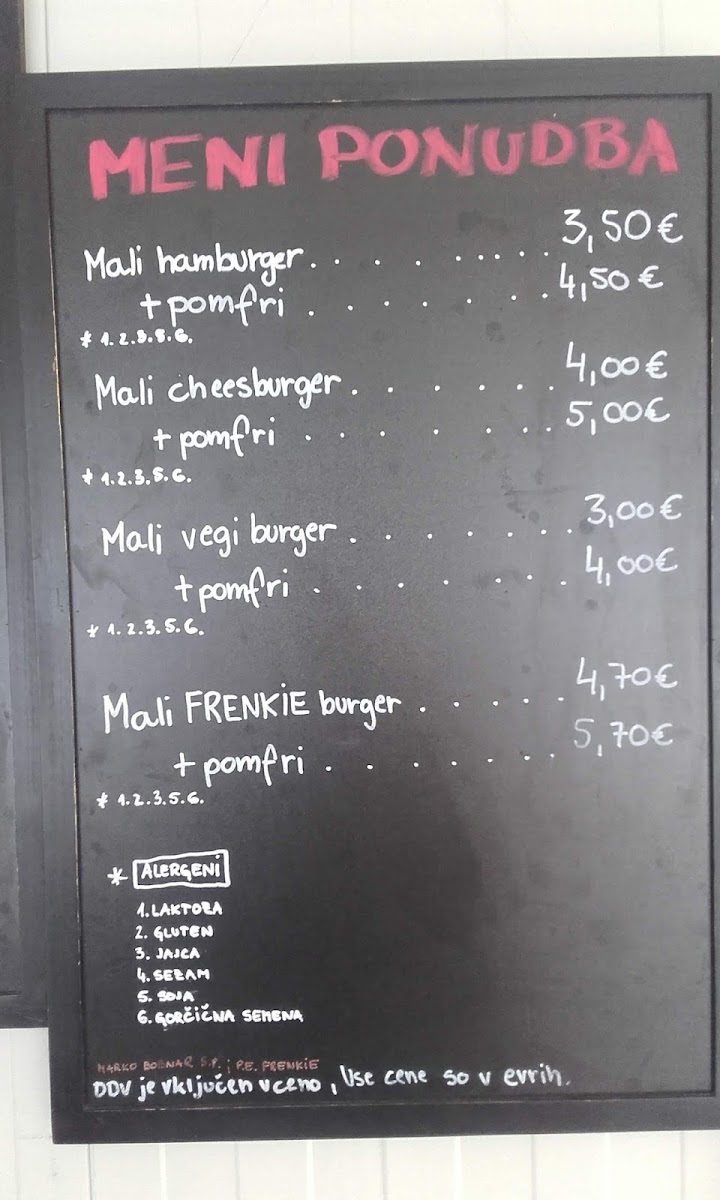 MENI PONUDBA
Mali hamburger. . . . . . . . . 3,50€
+ pomfri . . . . . . . . 4,50€
* 1.2.3.5.6.
Mali cheesburger. . . . . . . 4,00€
+ pomfri . . . . . . . 5,00€
* 1.2.3.5.6.
Mali vegi burger . . . . . . . . 3,00€
+ pomfri . . . . . . . . 4,00€
* 1.2.3.5.6.
Mali FRENKIE burger . . . . . 4,70€
+ pomfri . . . . . . . 5,70€
* 1.2.3.5.6.
* ALERGENI
1. LAKTOZA
2. GLUTEN
3. JAJCA
4. SEZAM
5. SOJA
6. GORČIČNA SEMENA
MARKO BOGNAR S.P. ; P.E. FRENKIE
DDV je vključen v ceno, Vse cene so v evrih.